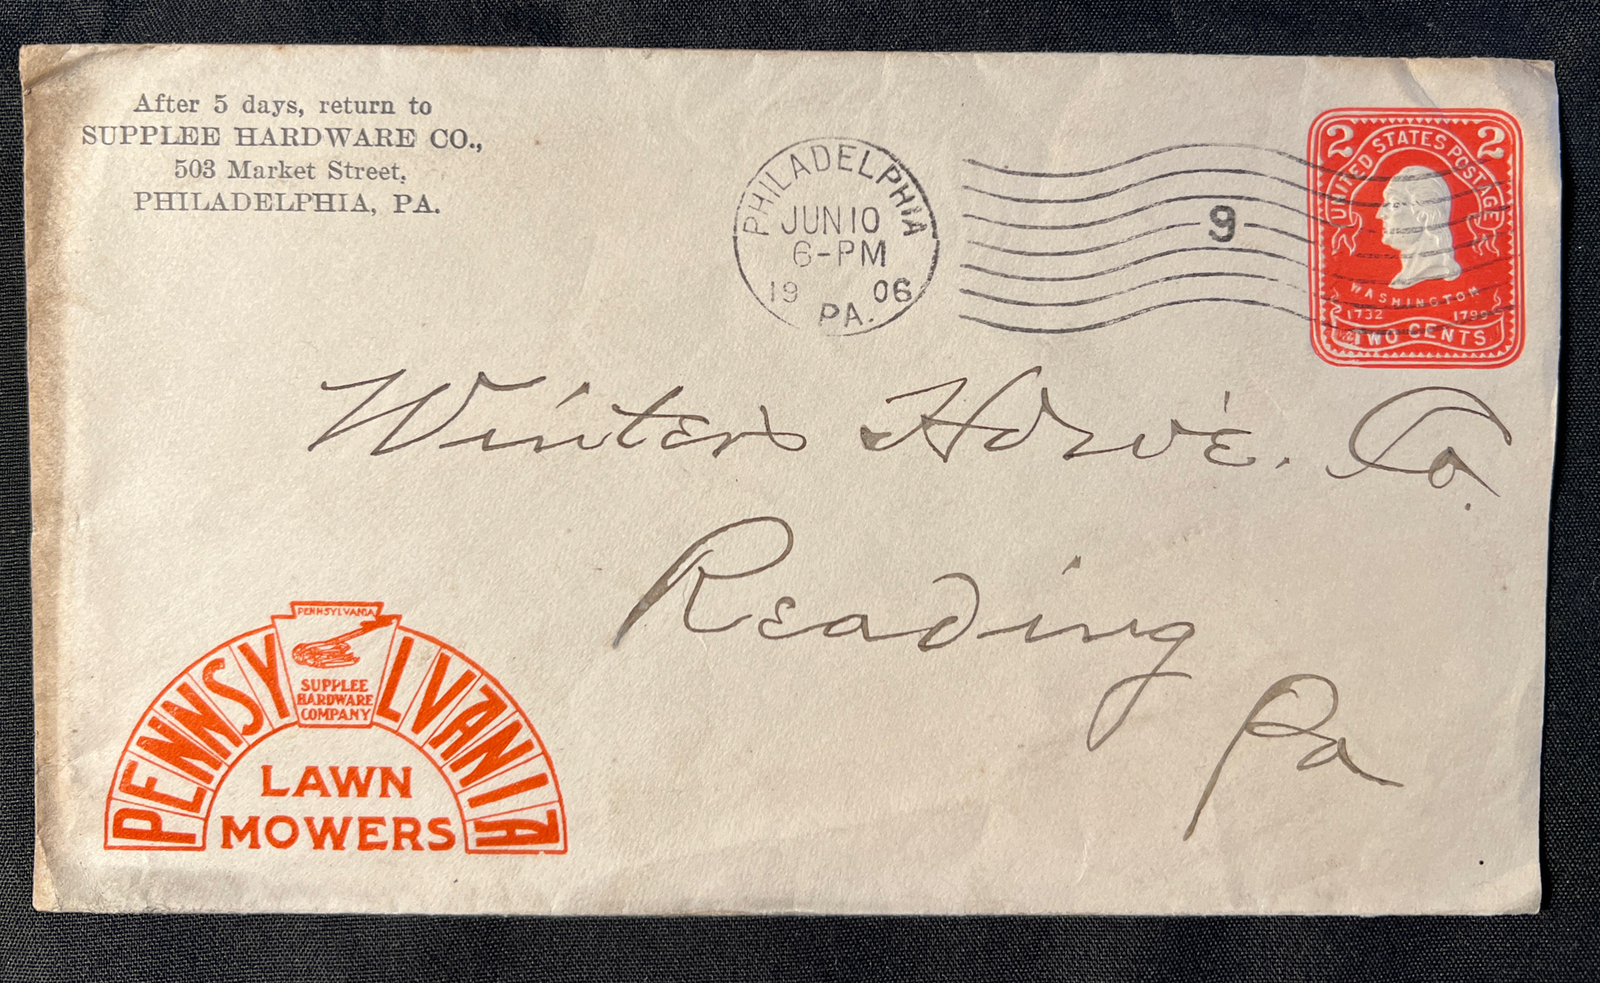 After 5 days, return to
SUPPLEE HARDWARE CO.,
503 Market Street,
PHILADELPHIA, PA.
PHILADELPHIA
JUN 10
6-PM
19 06
PA.
9
2 2
UNITED STATES POSTAGE
WASHINGTON
1732 1799
TWO CENTS
Winters Hdw'e. Co.
Reading
Pa
PENNSYLVANIA
PENNSYLVANIA
SUPPLEE
HARDWARE
COMPANY
LAWN
MOWERS